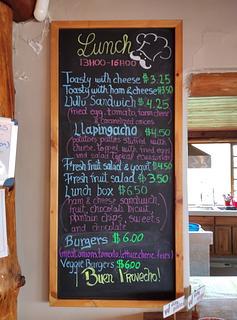 Lunch
13H00-16H00
Toasty with cheese $3.25
Toasty with ham & cheese $3.50
Sandwich $4.25
(fried egg, tomato, farm cheese
& caramelized onions
Llapingacho $4.50
(potatoes patties stuffed with
cheese, topped with fried eggs
and salad typical ecuadorian)
Fresh fruit salad & yogurt $4.50
Fresh fruit salad $3.50
Lunch box $6.50
(ham & cheese sandwich,
fruit, chocolate biscuit,
plantain chips, sweets
and chocolate
Burgers $6.00
(meat, onions, tomato, lettuce, cheese, fries)
Veggie Burgers $6.00
¡ Buen Provecho!